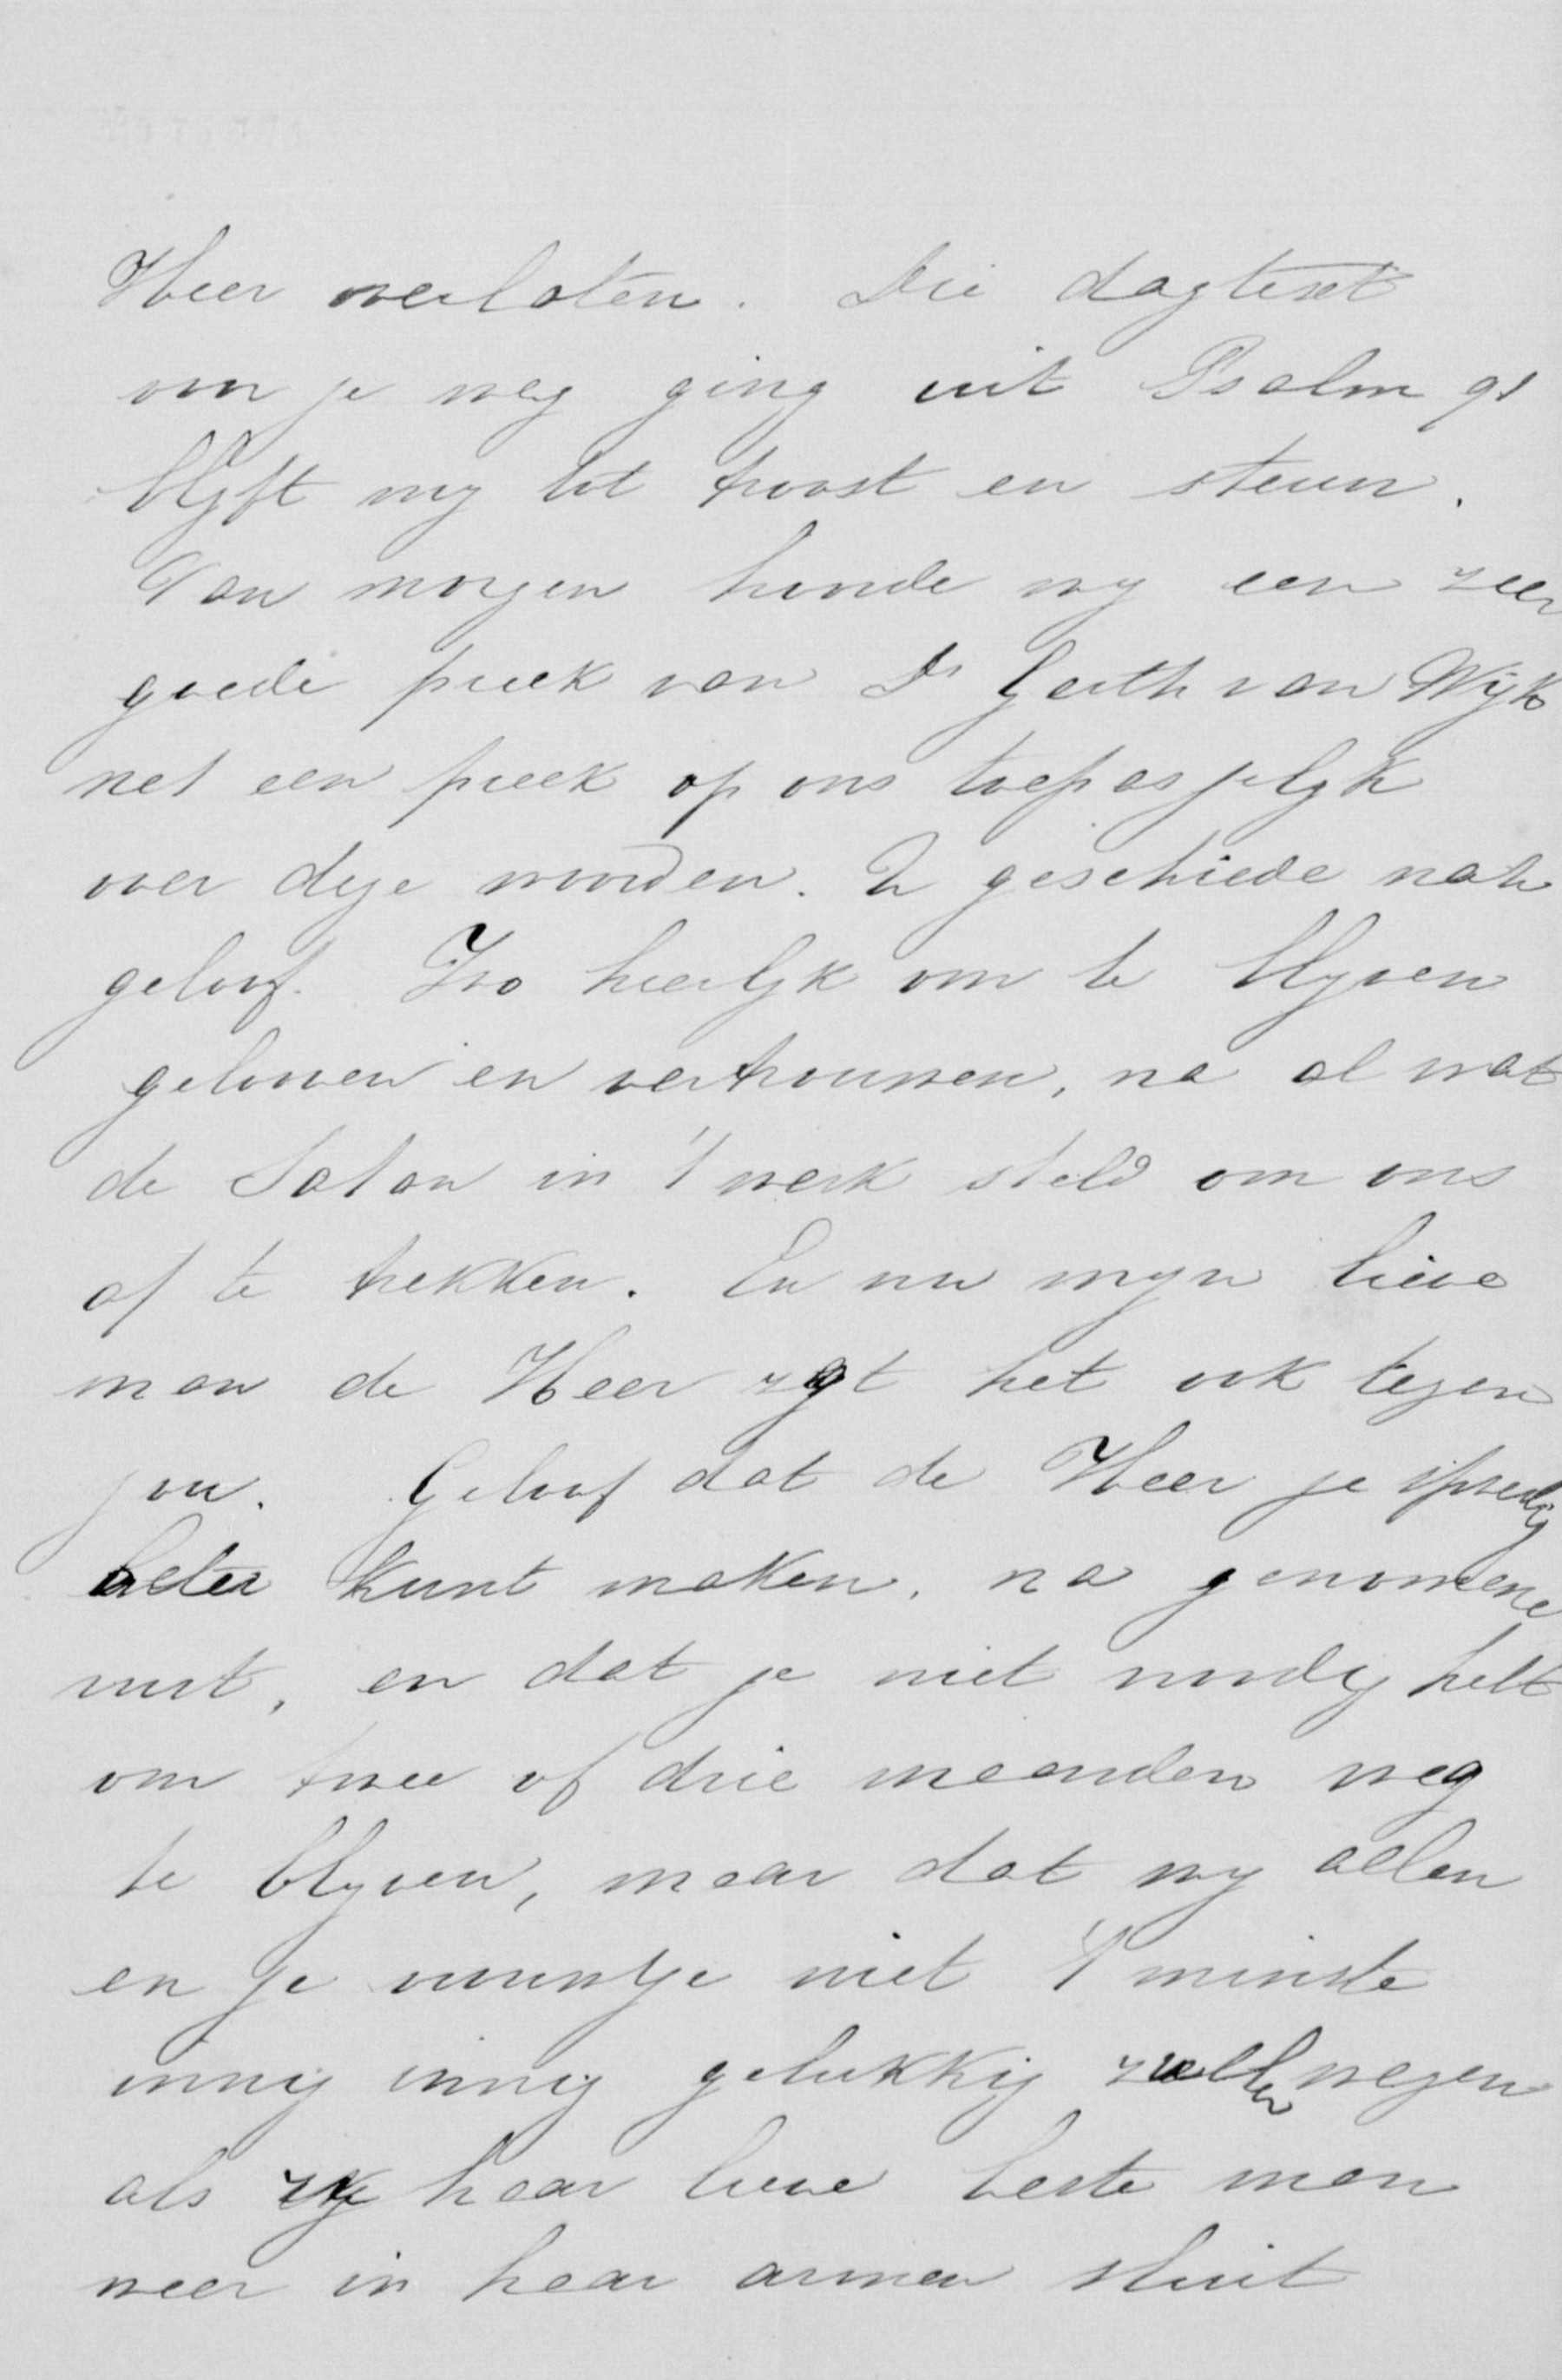 Heer verlaten. Die dagtext
van je weg ging uit Psalm 91
blyft my tot troost en steun.
Van morgen hoorde wy een zeer
goede preek van Ds Gerth van Wyk
net een preek op ons toepasselyk
over deze woorden. U geschiede naar
geloof. Zoo heerlyk om te blyven
gelooven en vertrouwen, na al wat
de Satan in 't werk steld om ons
af te trekken. En nu myn lieve
man de Heer zegt het ook tegen
jou. Geloof dat de Heer je spoedig
beter kunt maken, na genomene
rust, en dat je niet noodig hebt
om twee of drie maanden weg
te blyven, maar dat wy allen
en je vrouwtje niet 't minste
innig innig gelukkig zullen wezen
als zy haar lieve beste man
weer in haar armen sluit